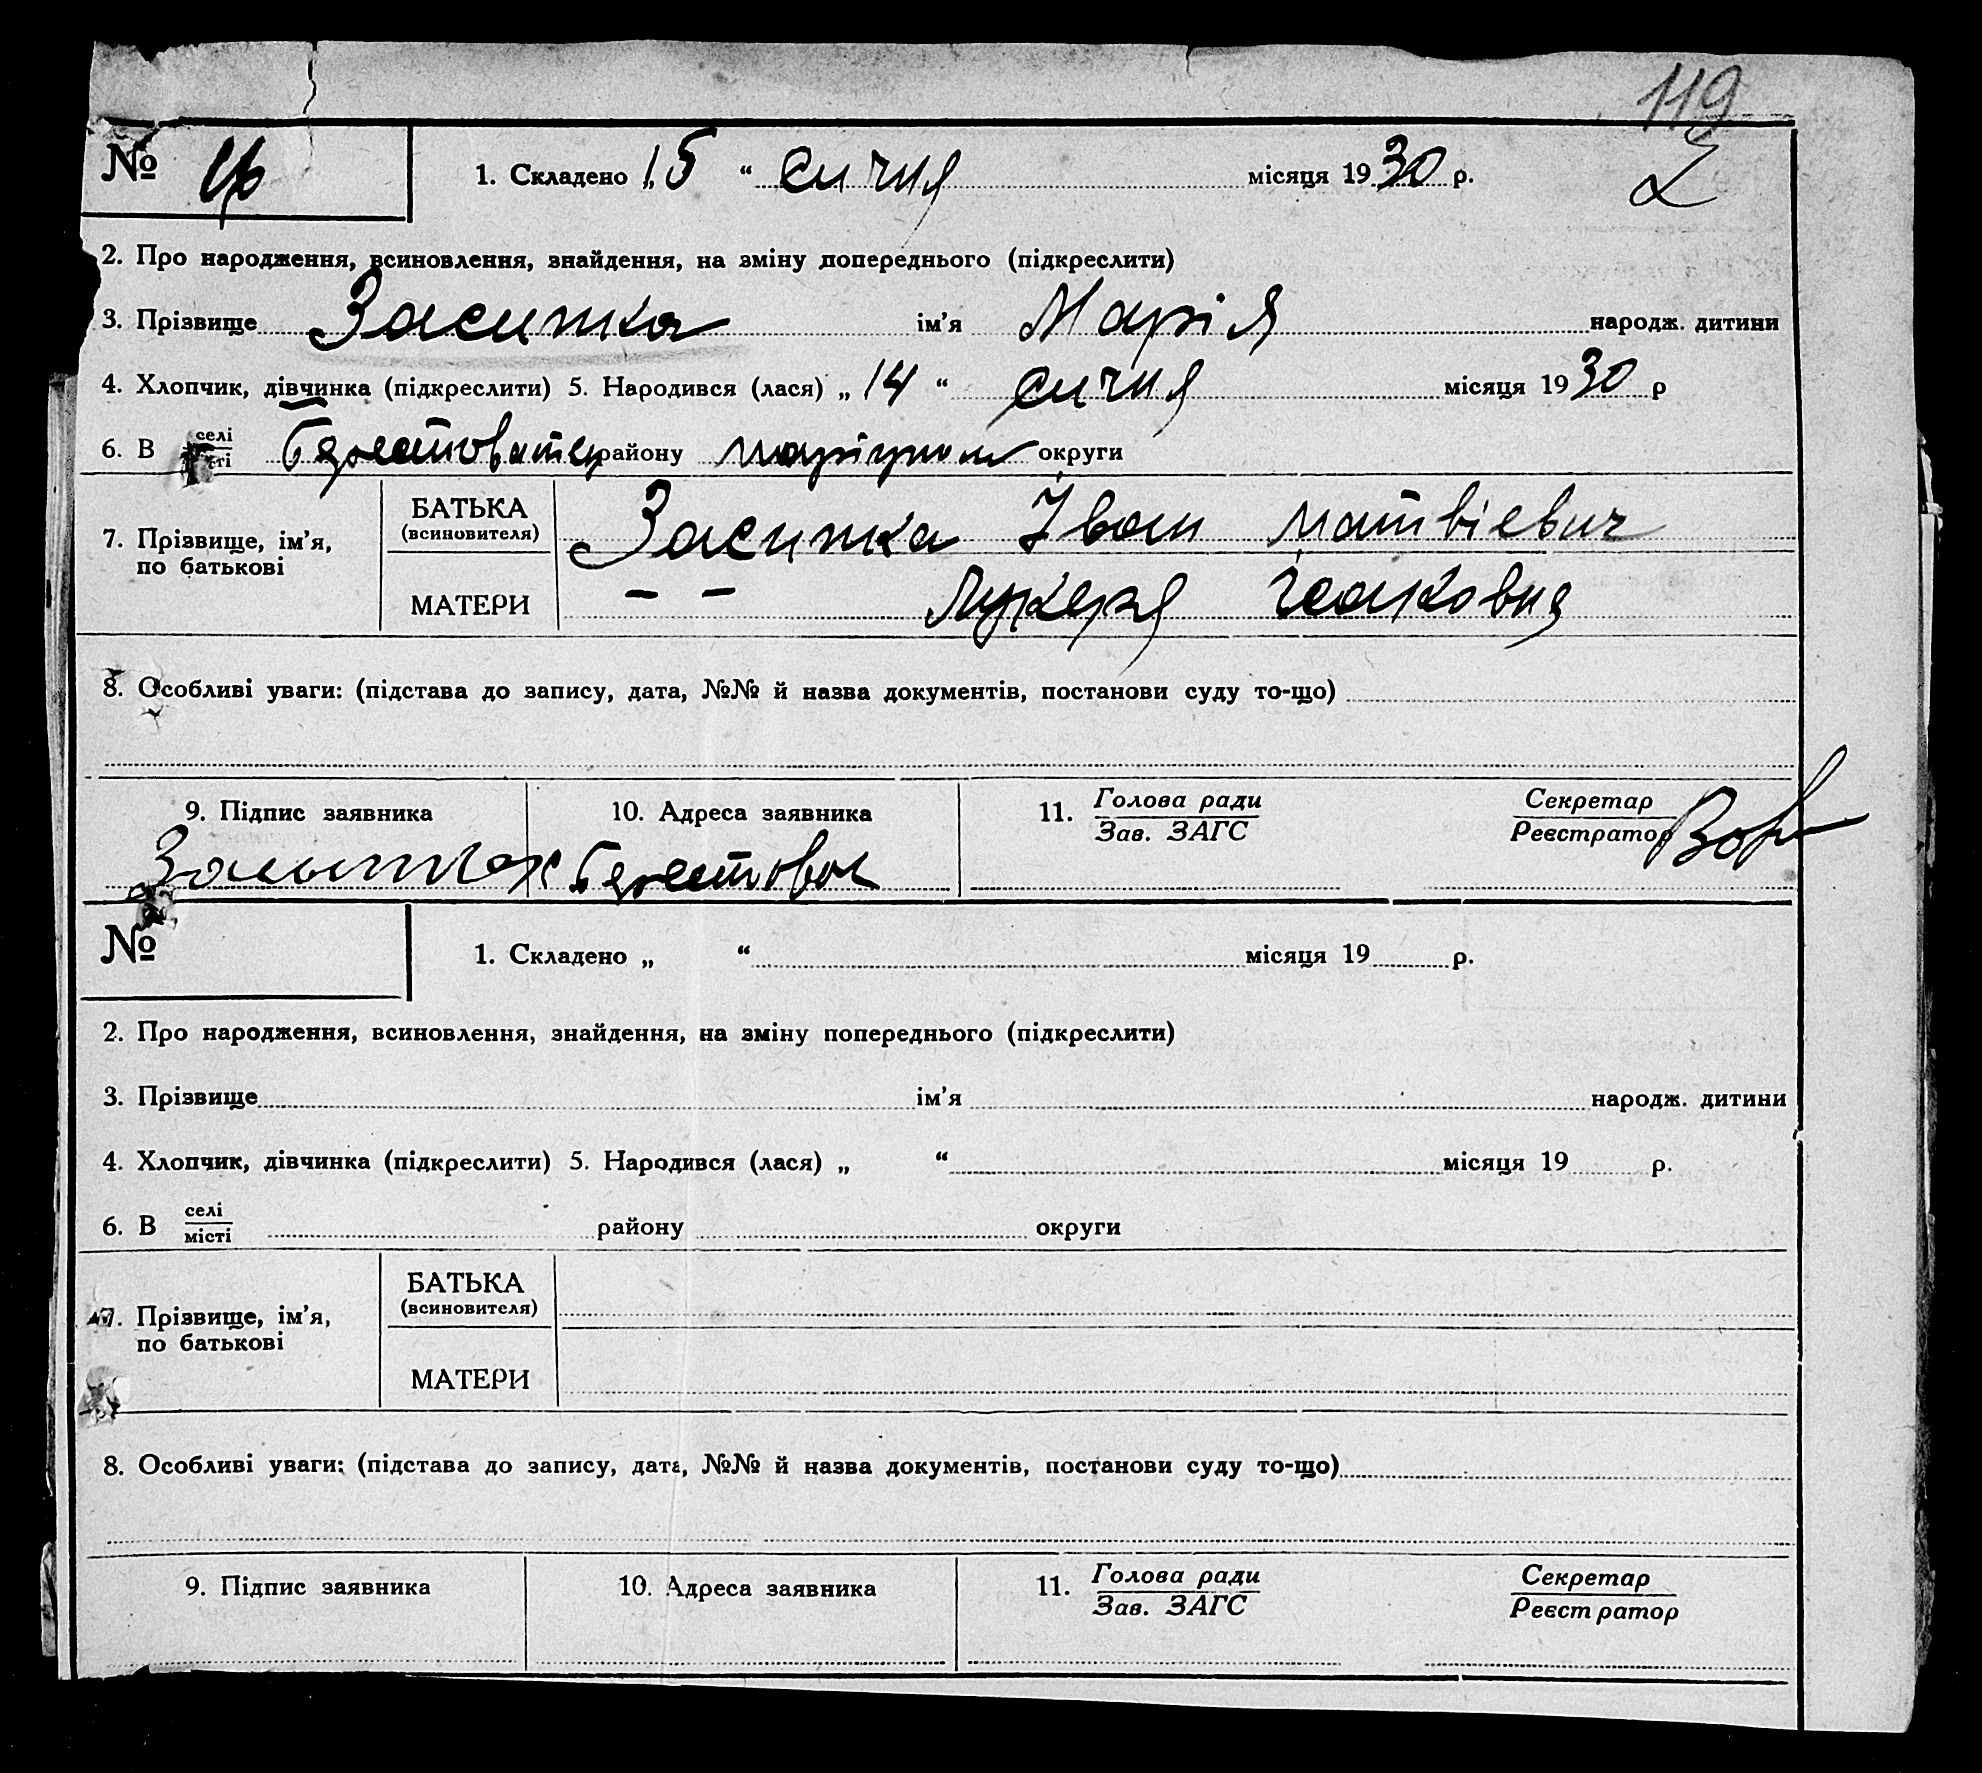 119
2
№ 16 1. Складено „15“ сичня місяця 1930 р.
2. Про народження, всиновлення, знайдення, на зміну попереднього (підкреслити)
3. Прізвище Засипка ім’я Марія народж. дитини
4. Хлопчик, дівчинка (підкреслити) 5. Народився (лася) „14“ сичня місяця 1930 р
6. В селі району округи
7. Прізвище, ім’я, по батькові
БАТЬКА (всиновителя) Засипка Іван Матвієвич
МАТЕРИ – – Лукеря Ісаковня
8. Особливі уваги: (підстава до запису, дата, №№ й назва документів, постанови суду то-що)
9. Підпис заявника 10. Адреса заявника 11. Голова ради Секретар
Зав. ЗАГС Реєстратор
Засыпка Берестовое
№ 1. Складено „ “ місяця 19 р.
2. Про народження, всиновлення, знайдення, на зміну попереднього (підкреслити)
3. Прізвище ім’я народж. дитини
4. Хлопчик, дівчинка (підкреслити) 5. Народився (лася) „ “ місяця 19 р.
6. В селі місті району округи
7. Прізвище, ім’я, по батькові
БАТЬКА (всиновителя)
МАТЕРИ
8. Особливі уваги: (підстава до запису, дата, №№ й назва документів, постанови суду то-що)
9. Підпис заявника 10. Адреса заявника 11. Голова ради Секретар
Зав. ЗАГС Реєстратор